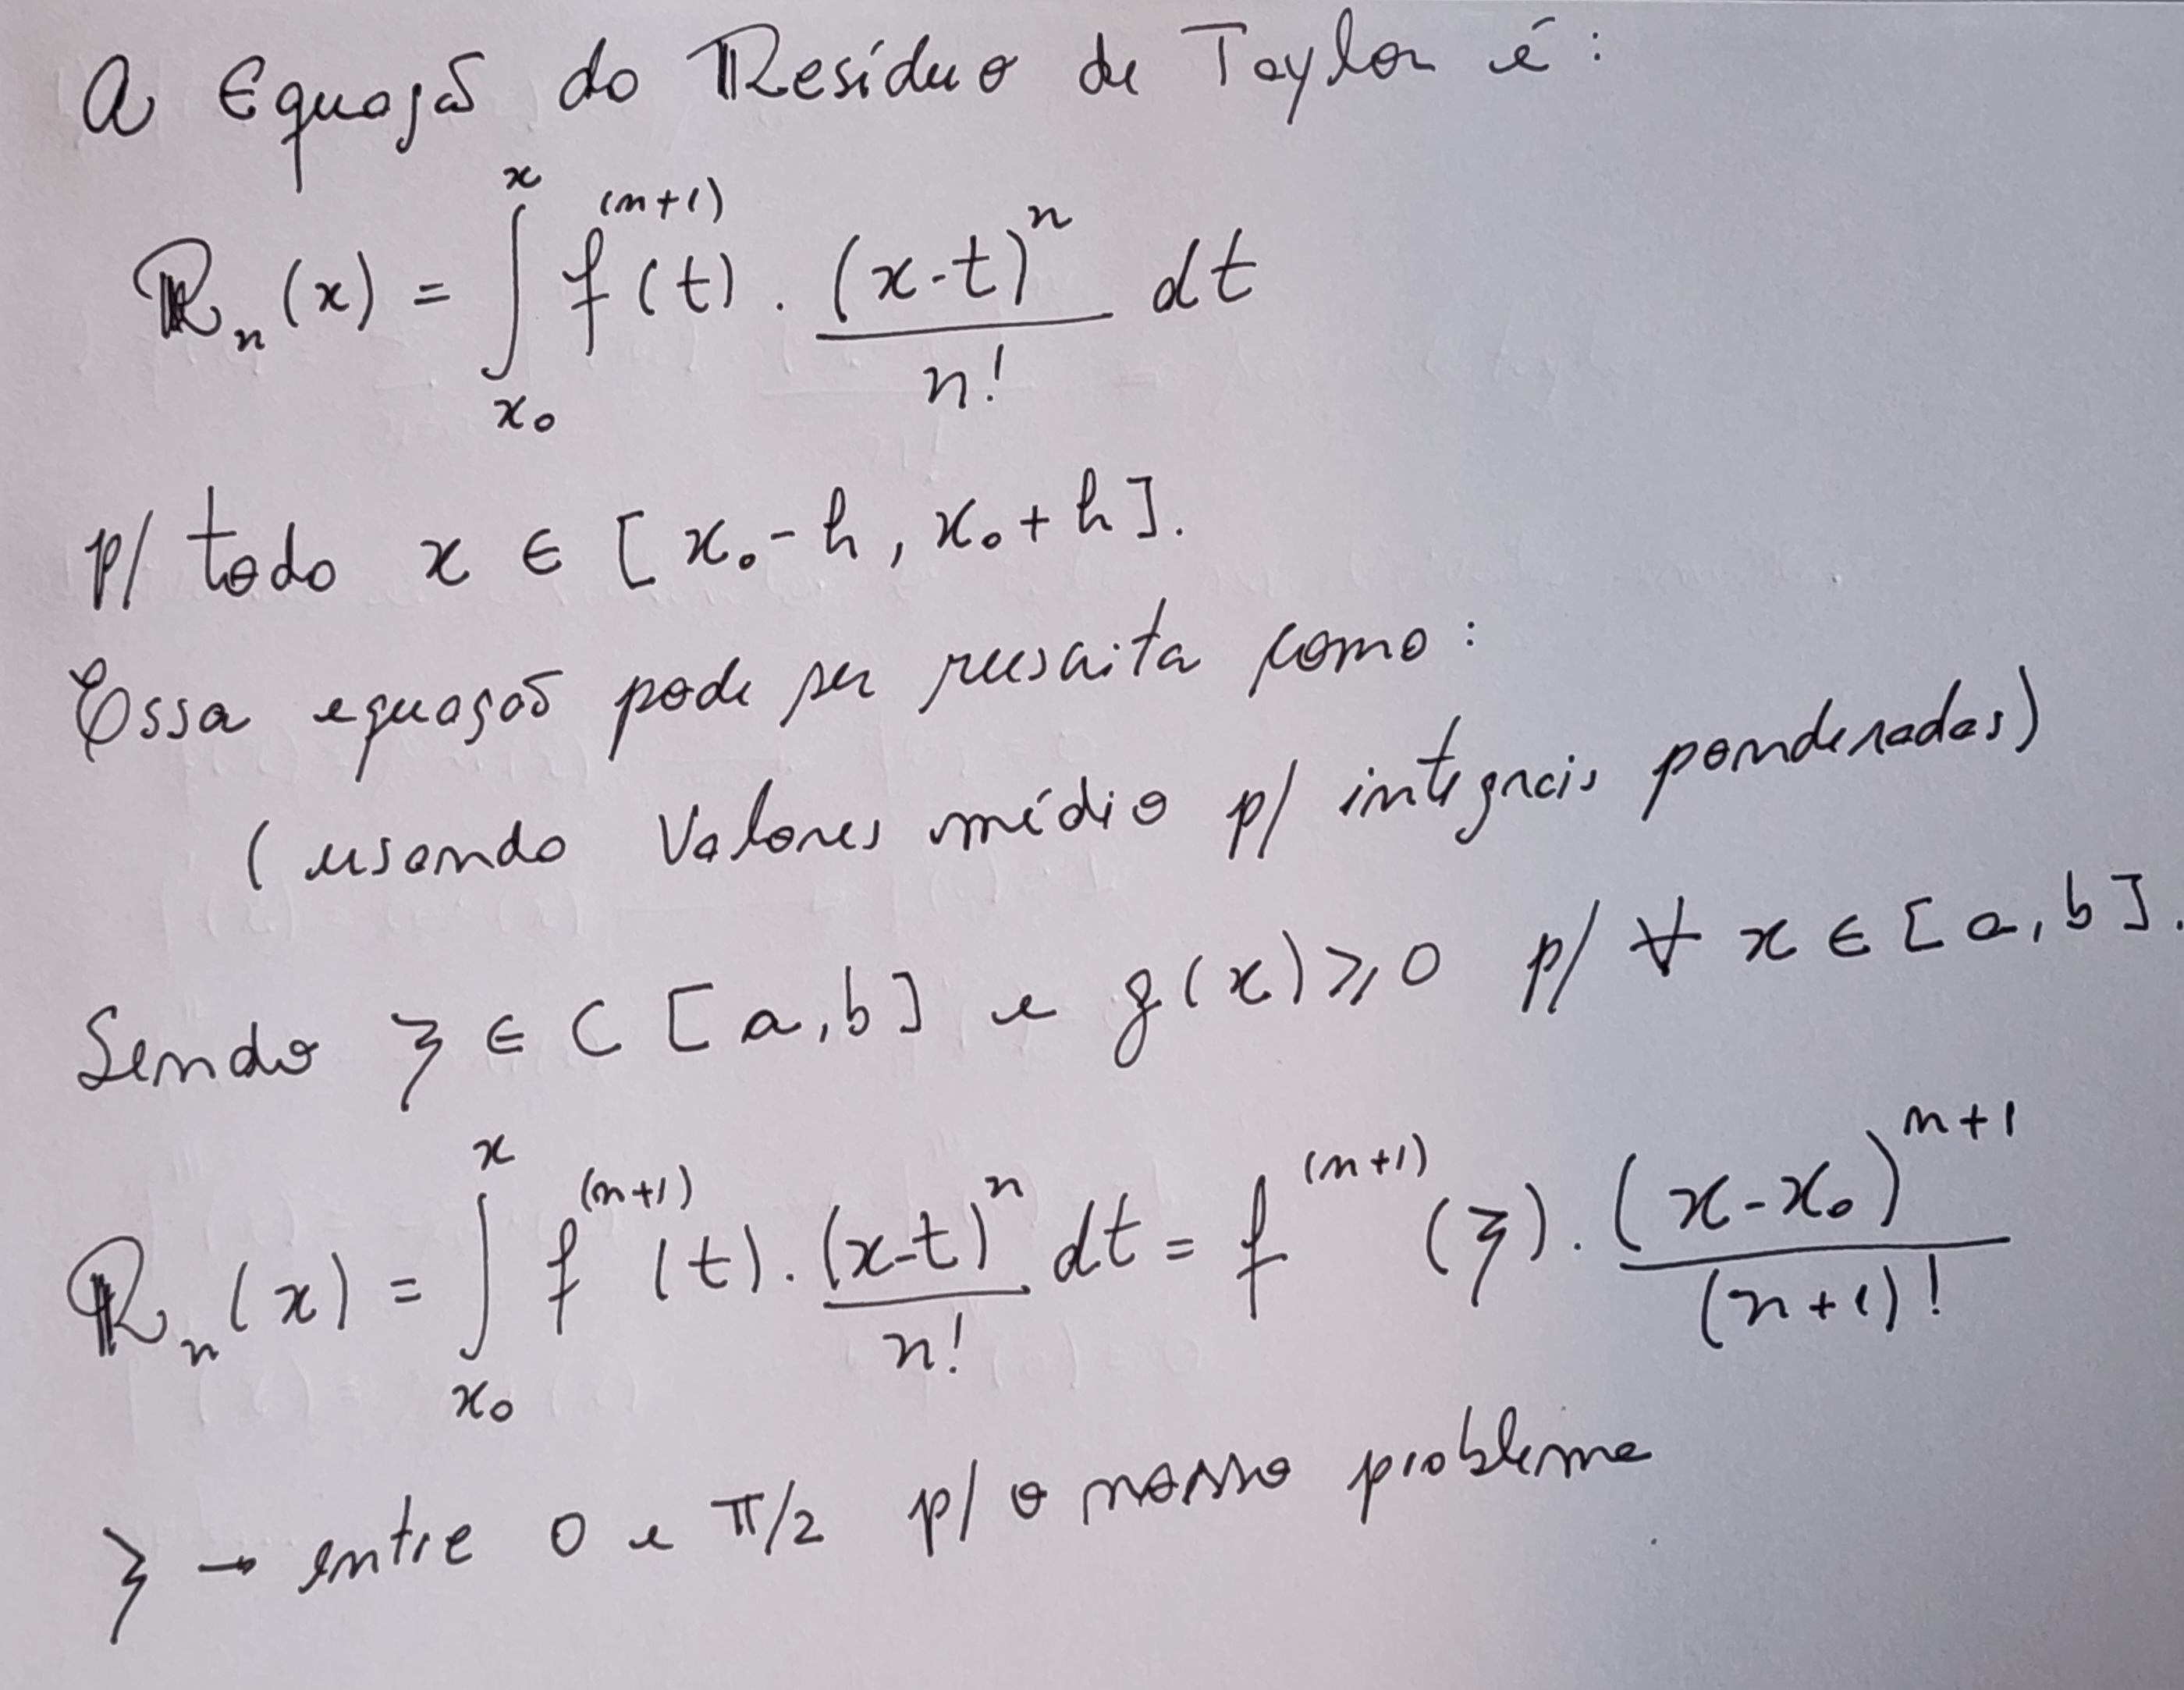 A Equação do Resíduo de Taylor é:
Rₙ(x) = ∫ₓ₀ˣ f⁽ⁿ⁺¹⁾(t) . (x-t)ⁿ / n! dt
p/ todo x ∈ [x₀-h, x₀+h].
Essa equação pode ser reescrita como:
(usando Valores médio p/ integrais ponderadas)
Sendo ξ ∈ C [a,b] e g(x) ⩾ 0 p/ ∀ x ∈ [a,b].
Rₙ(x) = ∫ₓ₀ˣ f⁽ⁿ⁺¹⁾(t) . (x-t)ⁿ / n! dt = f⁽ⁿ⁺¹⁾(ξ) . (x-x₀)ⁿ⁺¹ / (n+1)!
ξ → entre 0 e π/2 p/ o nosso problema